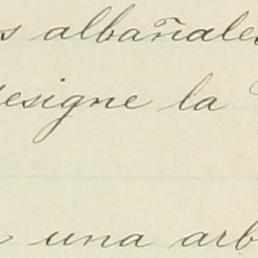 s albañales
designe la
una arb